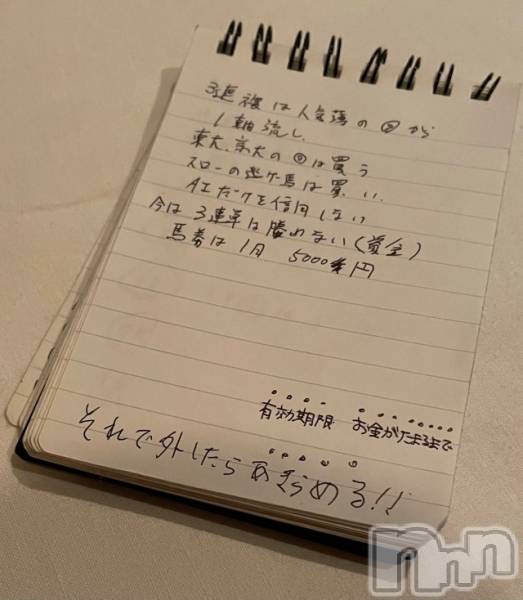 3連複は人気薄の◎から
1軸流し
東大、京大の◎は買う
スローの逃げ馬は買い
AIだけを信用しない
今は3連単は勝れない(資金)
馬券は1日 5000円
有効期限 お金がたまるまで
それで外したらあきらめる!!
nnn